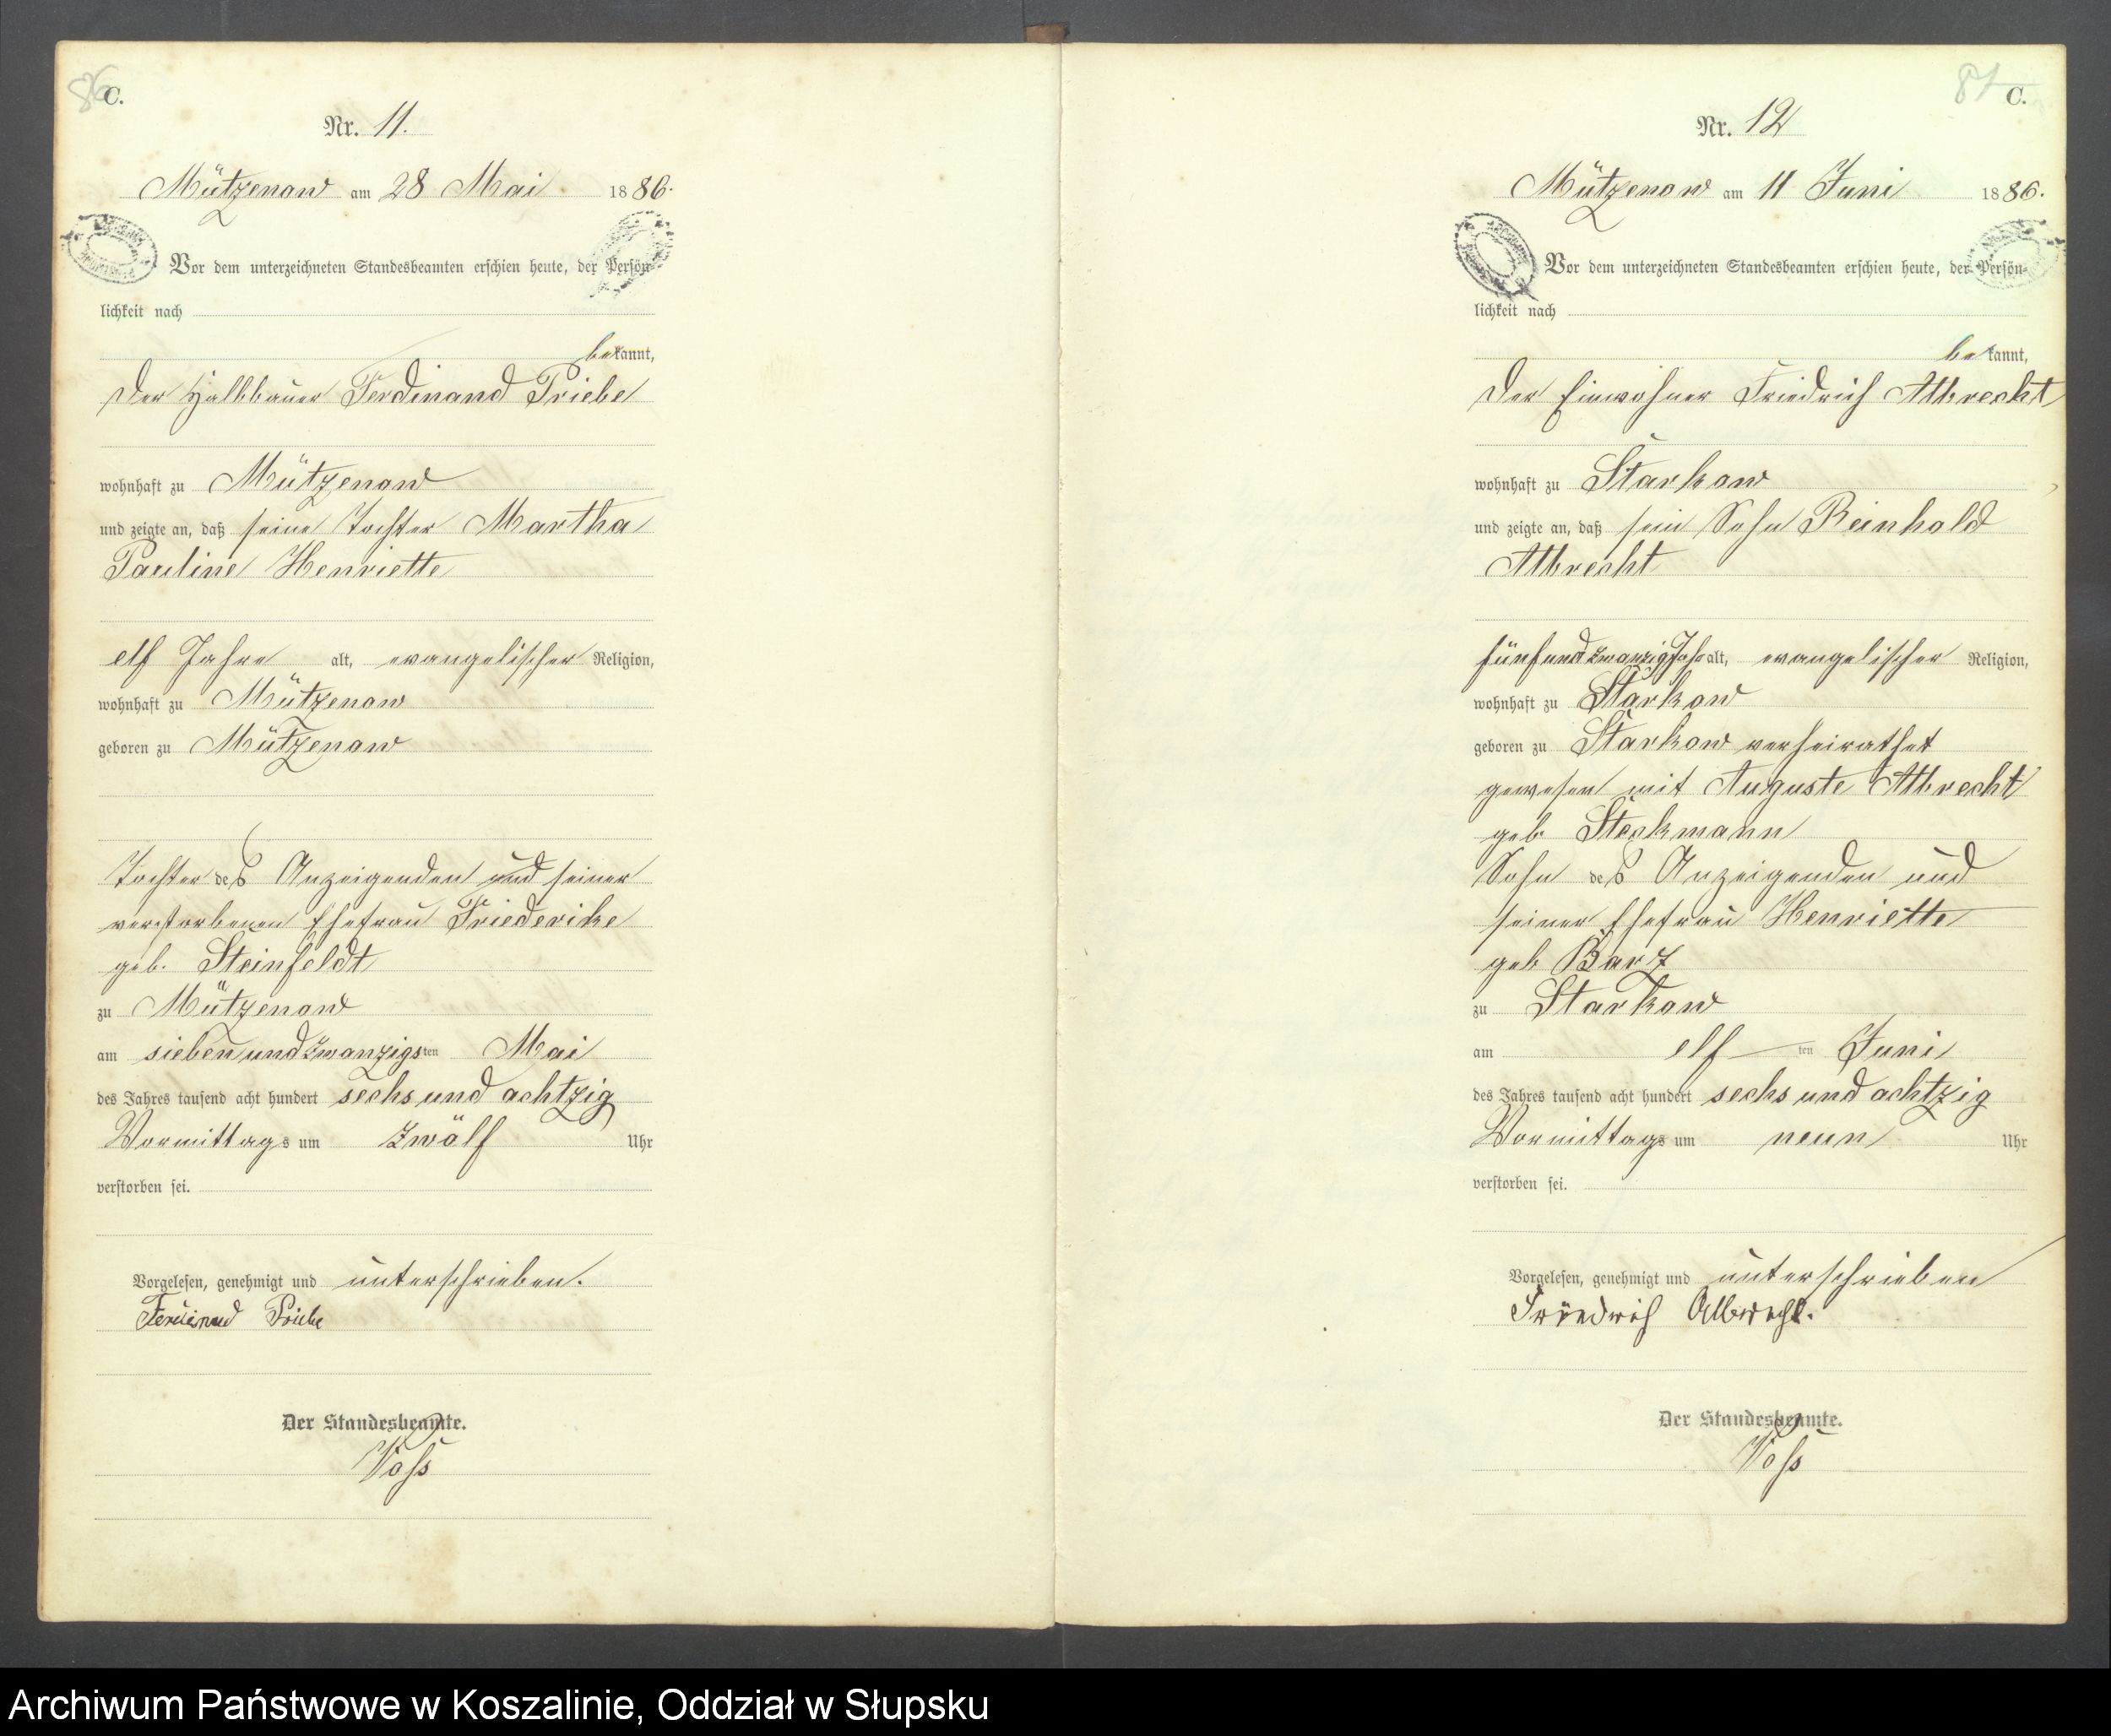 86
C.
Nr. 11.
Mützenow am 28 Mai 1886.
Vor dem unterzeichneten Standesbeamten erschien heute, der Persön-
lichkeit nach
bekannt,
der Halbbauer Ferdinand Priebe
wohnhaft zu Mützenow
und zeigte an, daß seine Tochter Martha
Pauline Henriette
elf Jahre alt, evangelischer Religion,
wohnhaft zu Mützenow
geboren zu Mützenow
Tochter des Anzeigenden und seiner
verstorbenen Ehefrau Friederike
geb. Steinfeldt
zu Mützenow
am sieben und zwanzigsten Mai
des Jahres tausend acht hundert sechs und achtzig
Vormittags um zwölf Uhr
verstorben sei.
Vorgelesen, genehmigt und unterschrieben.
Ferdinand Priebe
Der Standesbeamte.
Voss
87
C.
Nr. 12
Mützenow am 11 Juni 1886.
Vor dem unterzeichneten Standesbeamten erschien heute, der Persön-
lichkeit nach
bekannt,
der Einwohner Friedrich Albrecht
wohnhaft zu Starkow
und zeigte an, daß sein Sohn Reinhold
Albrecht
fünf und zwanzig Jahr alt, evangelischer Religion,
wohnhaft zu Starkow
geboren zu Starkow verheirathet
gewesen mit Auguste Albrecht
geb. Steckmann
Sohn des Anzeigenden und
seiner Ehefrau Henriette
geb Barz
zu Starkow
am elf ten Juni
des Jahres tausend acht hundert sechs und achtzig
Vormittags um neun Uhr
verstorben sei.
Vorgelesen, genehmigt und unterschrieben
Friedrich Albrecht.
Der Standesbeamte.
Voss
Archiwum Państwowe w Koszalinie, Oddział w Słupsku